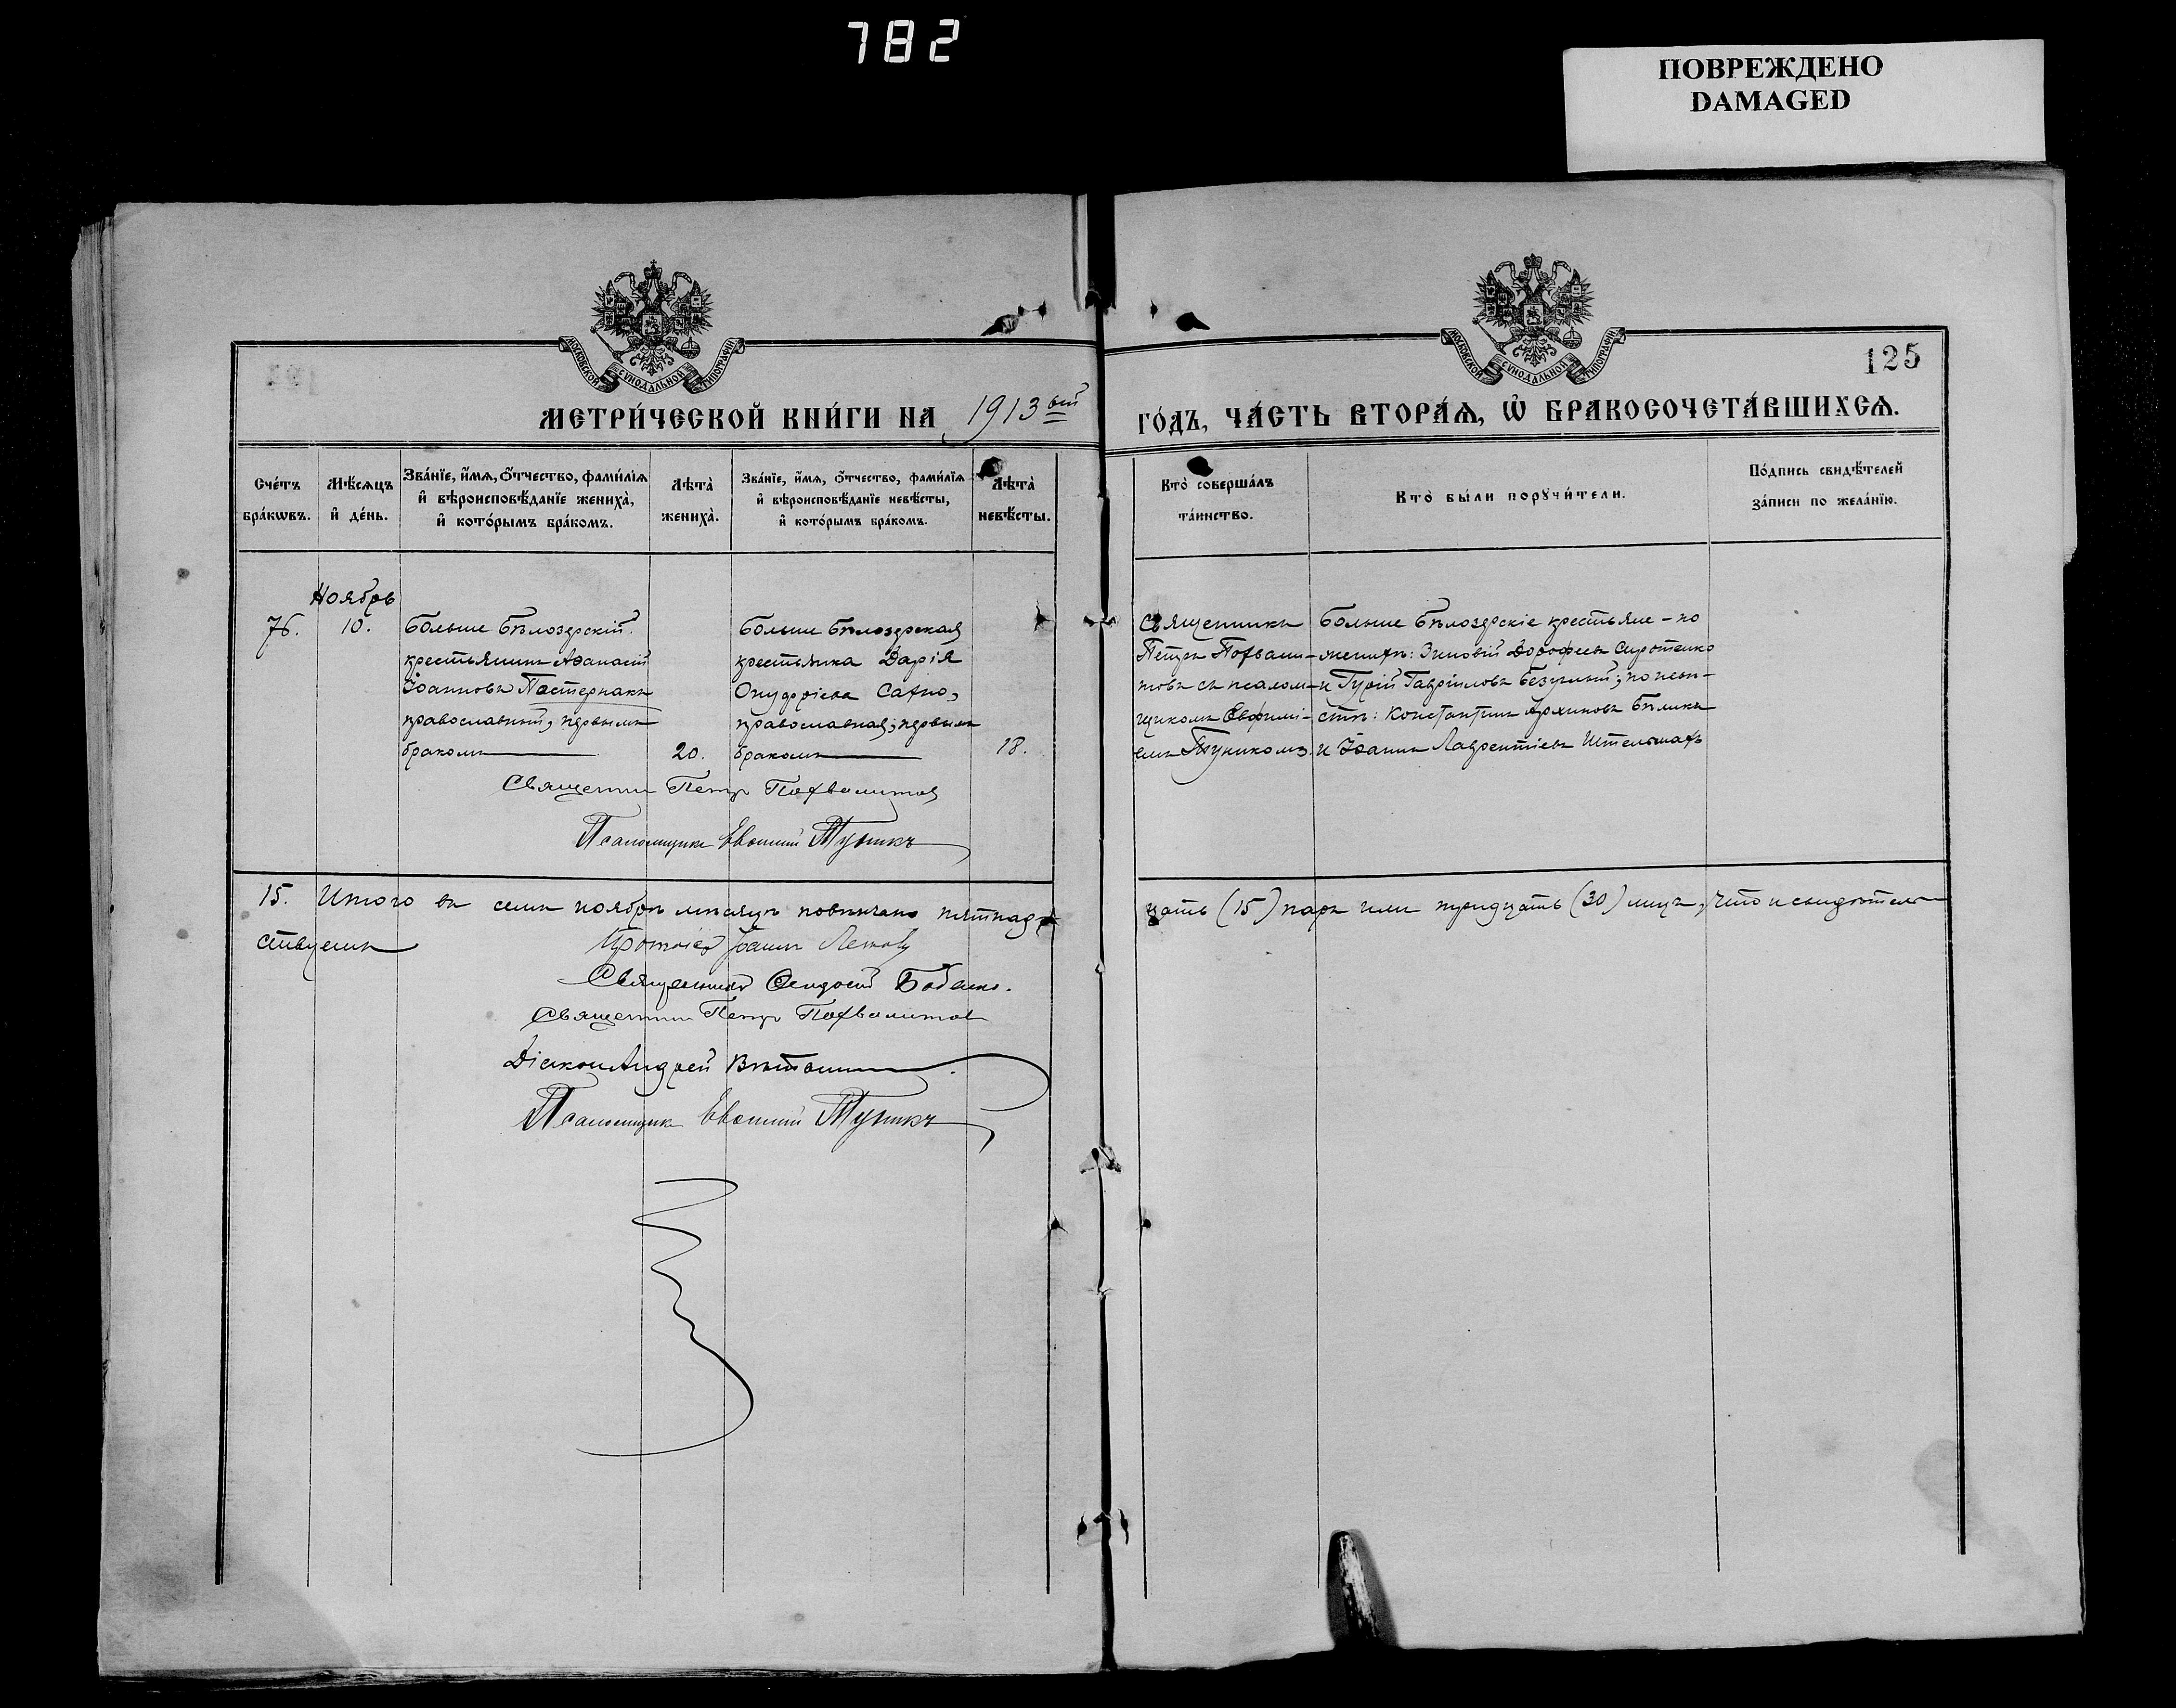 782
ПОВРЕЖДЕНО
DAMAGED
МОСКОВСКОЙ СѴНОДАЛЬНОЙ ТИПОГРАФІИ
МОСКОВСКОЙ СѴНОДАЛЬНОЙ ТИПОГРАФІИ
125
МЕТРИ́ЧЕСКОЙ КНИ́ГИ НА 1913 ый
ГО́ДЪ, ЧА́СТЬ ВТОРА́Ѧ, Ѡ҆ БРАКОСОЧЕТА́ВШИХСѦ.
Сче́тъ
бра́кѡвъ.
Мѣ́сѧцъ
и҆ де́нь.
Зва́нїе, и҆́мѧ, ѻ҆́тчество, фами́лїѧ
и҆ вѣроисповѣ́данїе жениха̀,
и҆ кото́рымъ бра́комъ.
Лѣта̀
жениха̀.
Зва́нїе, и҆́мѧ, ѻ҆́тчество, фами́лїѧ
и҆ вѣроисповѣ́данїе невѣ́сты,
и҆ кото́рымъ бра́комъ.
Лѣта̀
невѣ́сты.
Кто̀ соверша́лъ
та́инство.
Кто̀ бы́ли порꙋчи́тели.
По́дпись свидѣ́телей
за́писи по жела́нїю.
Ноябрь
76.
10.
Больше Бѣлозерскій
крестьянинъ Аѳанасій
Іоанновъ Пастернакъ
православный, первымъ
бракомъ
20.
Больше Бѣлозерская
крестьянка Дарія
Онуфріева Сахно,
православная; первымъ
бракомъ
18.
Священникъ
Петръ Похвали-
товъ съ псалом-
щикомъ Евфимі-
емъ Туникомъ.
Больше Бѣлозерскіе крестьяне - по
женихѣ: Зиновій Дорофеевъ Сиротенко
и Гурій Гавріиловъ Безуглый; по невѣ-
стѣ: Константинъ Архиповъ Бѣликъ
и Іоаннъ Лаврентіевъ Штельмахъ
Священник Петр Похвалитов
Псаломщикъ Евфимій Туникъ
15. Итого въ семъ ноябрѣ мѣсяцѣ повѣнчано пятнад-
цать (15) паръ или тридцать (30) лицъ, что и свидѣтель-
ствуемъ
Протоіерей Іоаннъ
Священникъ Ѳеодосій
Священник Петр Похвалитов
Діаконъ Андрей
Псаломщикъ Евфимій Туникъ